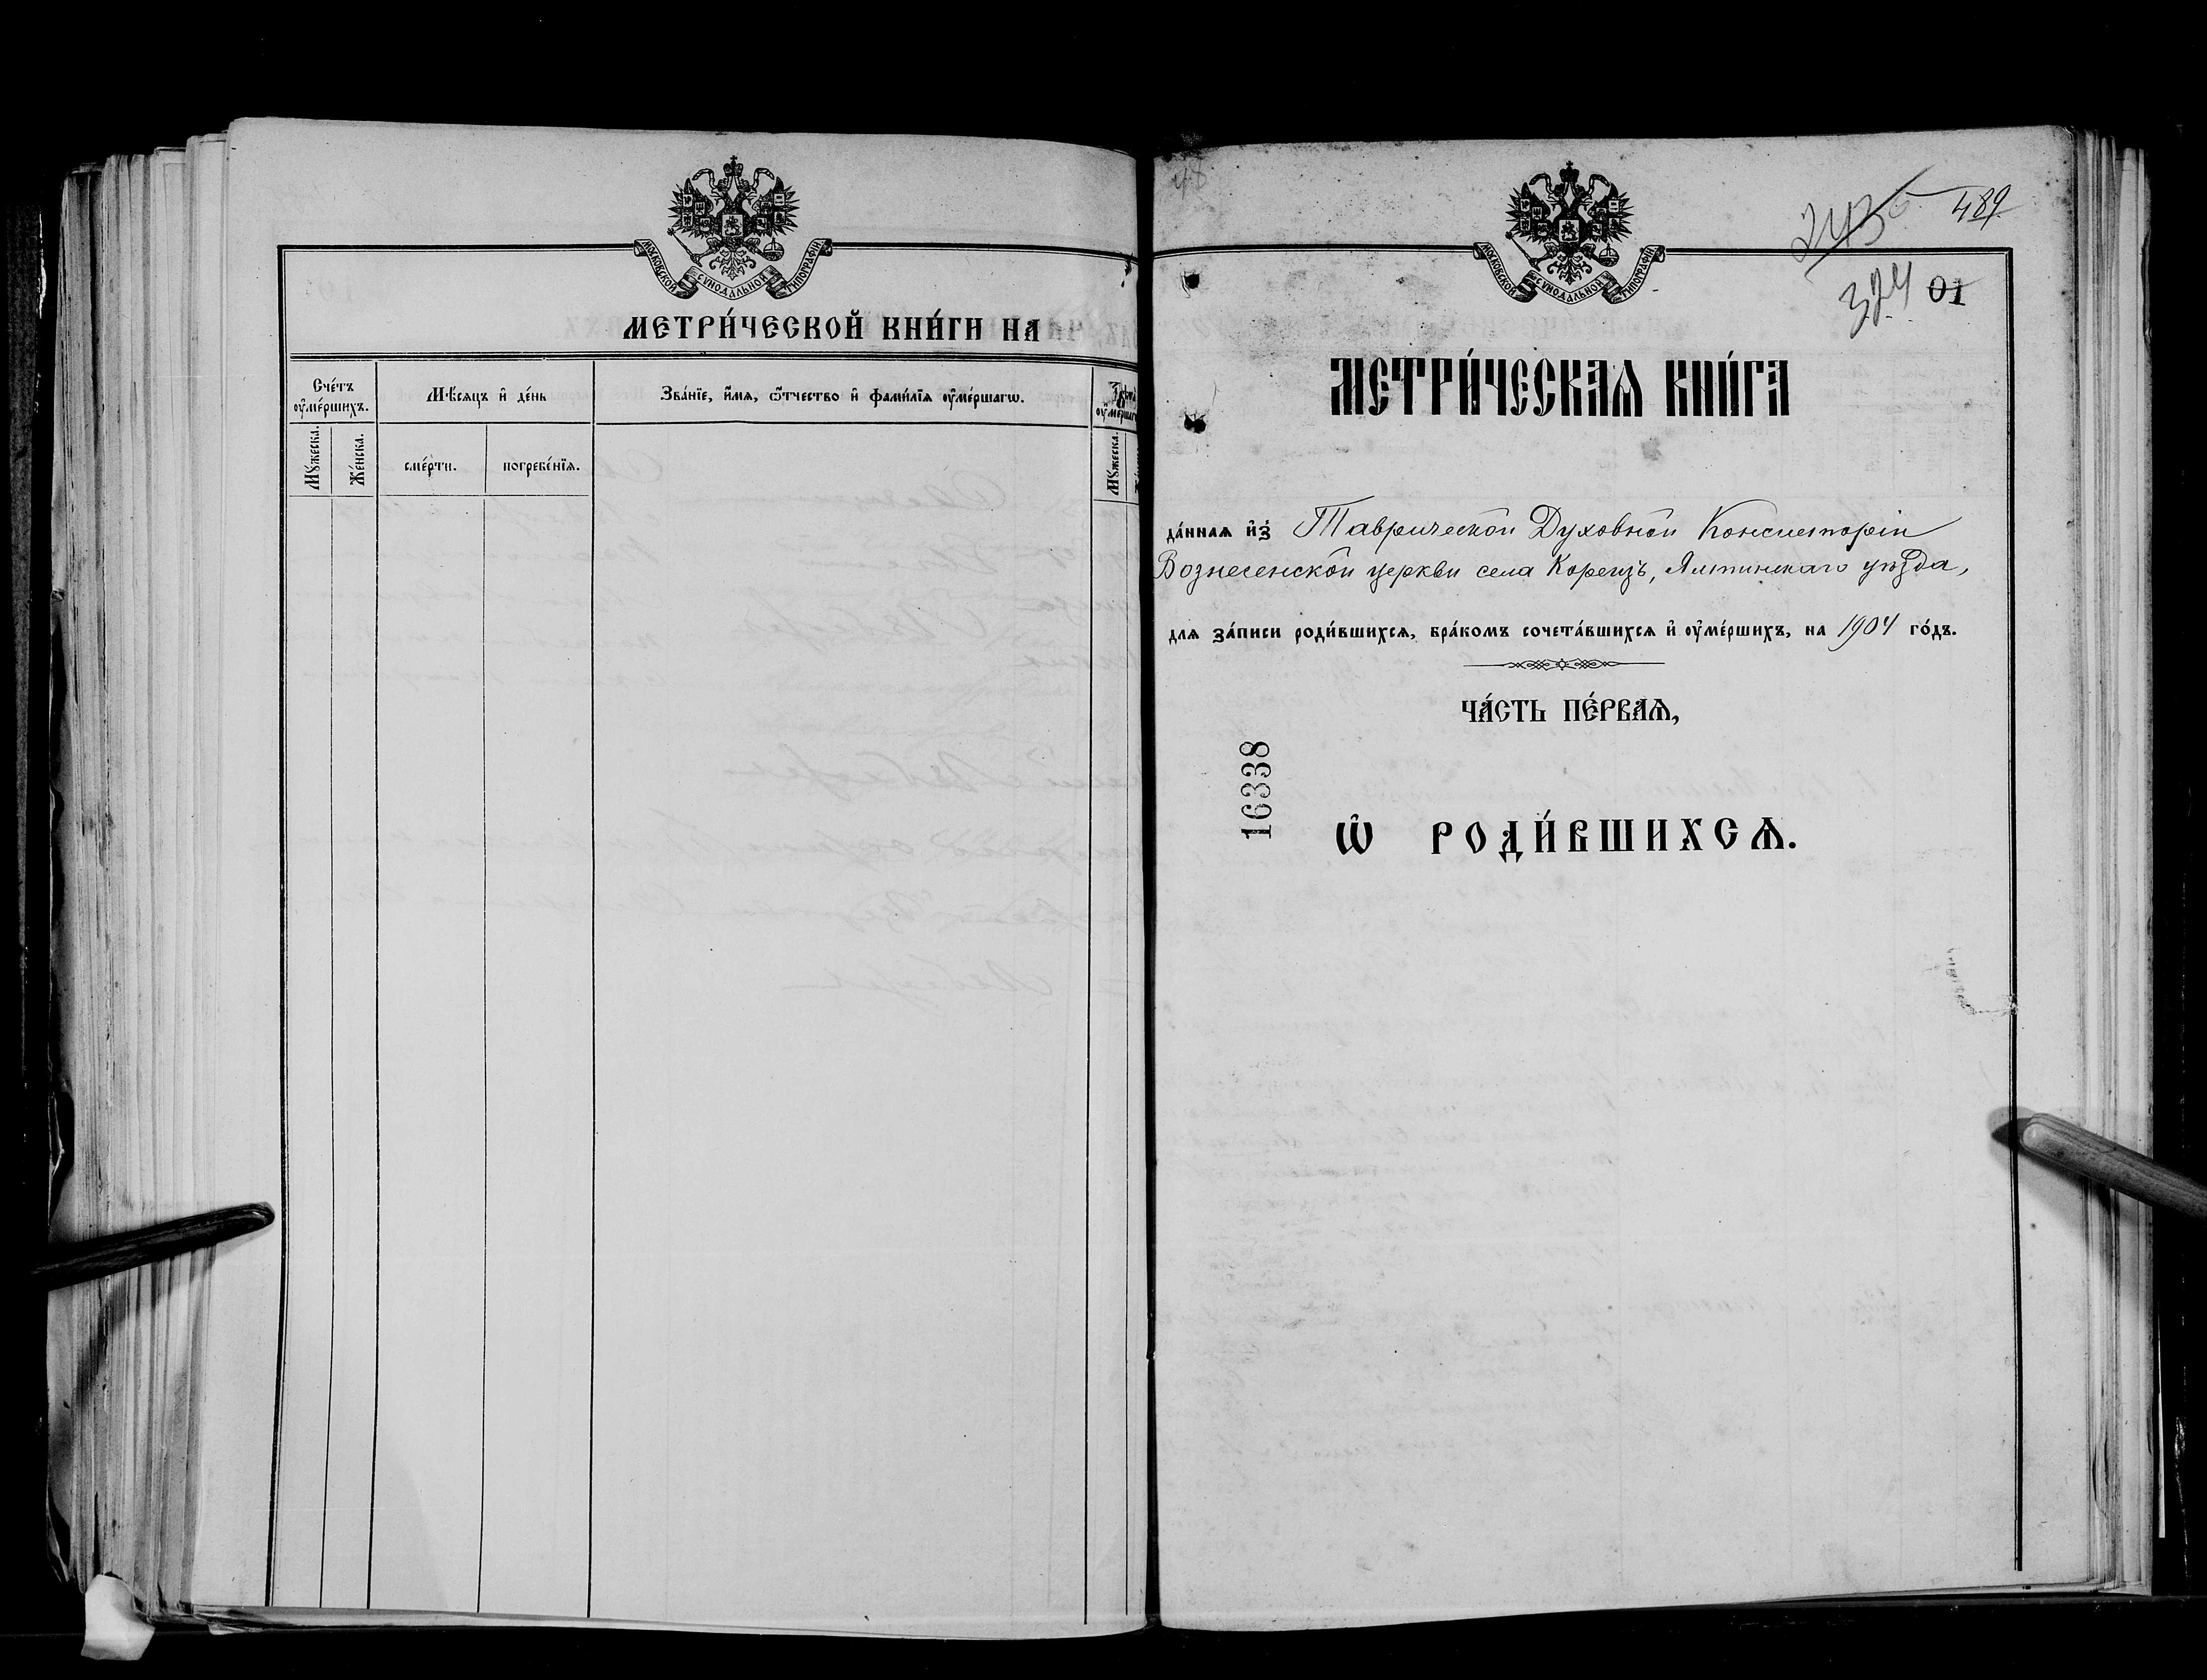 МОСКОВСКОЙ СѴНОДАЛЬНОЙ ТИПОГРАФІИ
МЕТРИ́ЧЕСКОЙ КНИ́ГИ НА
Сче́тъ ᲂу҆ме́ршихъ.
Мѣ́сяцъ и҆ де́нь
Зва́нїе, и҆́мѧ, ѻ҆́тчество и҆ фами́лїѧ ᲂу҆ме́ршагѡ.
Мꙋ́жеска.
Же́нска.
сме́рти.
погребе́нїѧ.
Мꙋ́жеска.
МОСКОВСКОЙ СѴНОДАЛЬНОЙ ТИПОГРАФІИ
489
324 01
МЕТРИ́ЧЕСКАѦ КНИ́ГА
да́ннаѧ и҆з̾ Таврической Духовной Консисторіи
Вознесенской церкви села Кореизъ, Ялтинскаго уѣзда,
длѧ за́писи роди́вшихсѧ, бра́комъ сочета́вшихсѧ и҆ ᲂу҆ме́ршихъ, на 1904 го́дъ.
ЧА́СТЬ ПЕ́РВАѦ,
16338
Ѽ РОДИ́ВШИХСѦ.